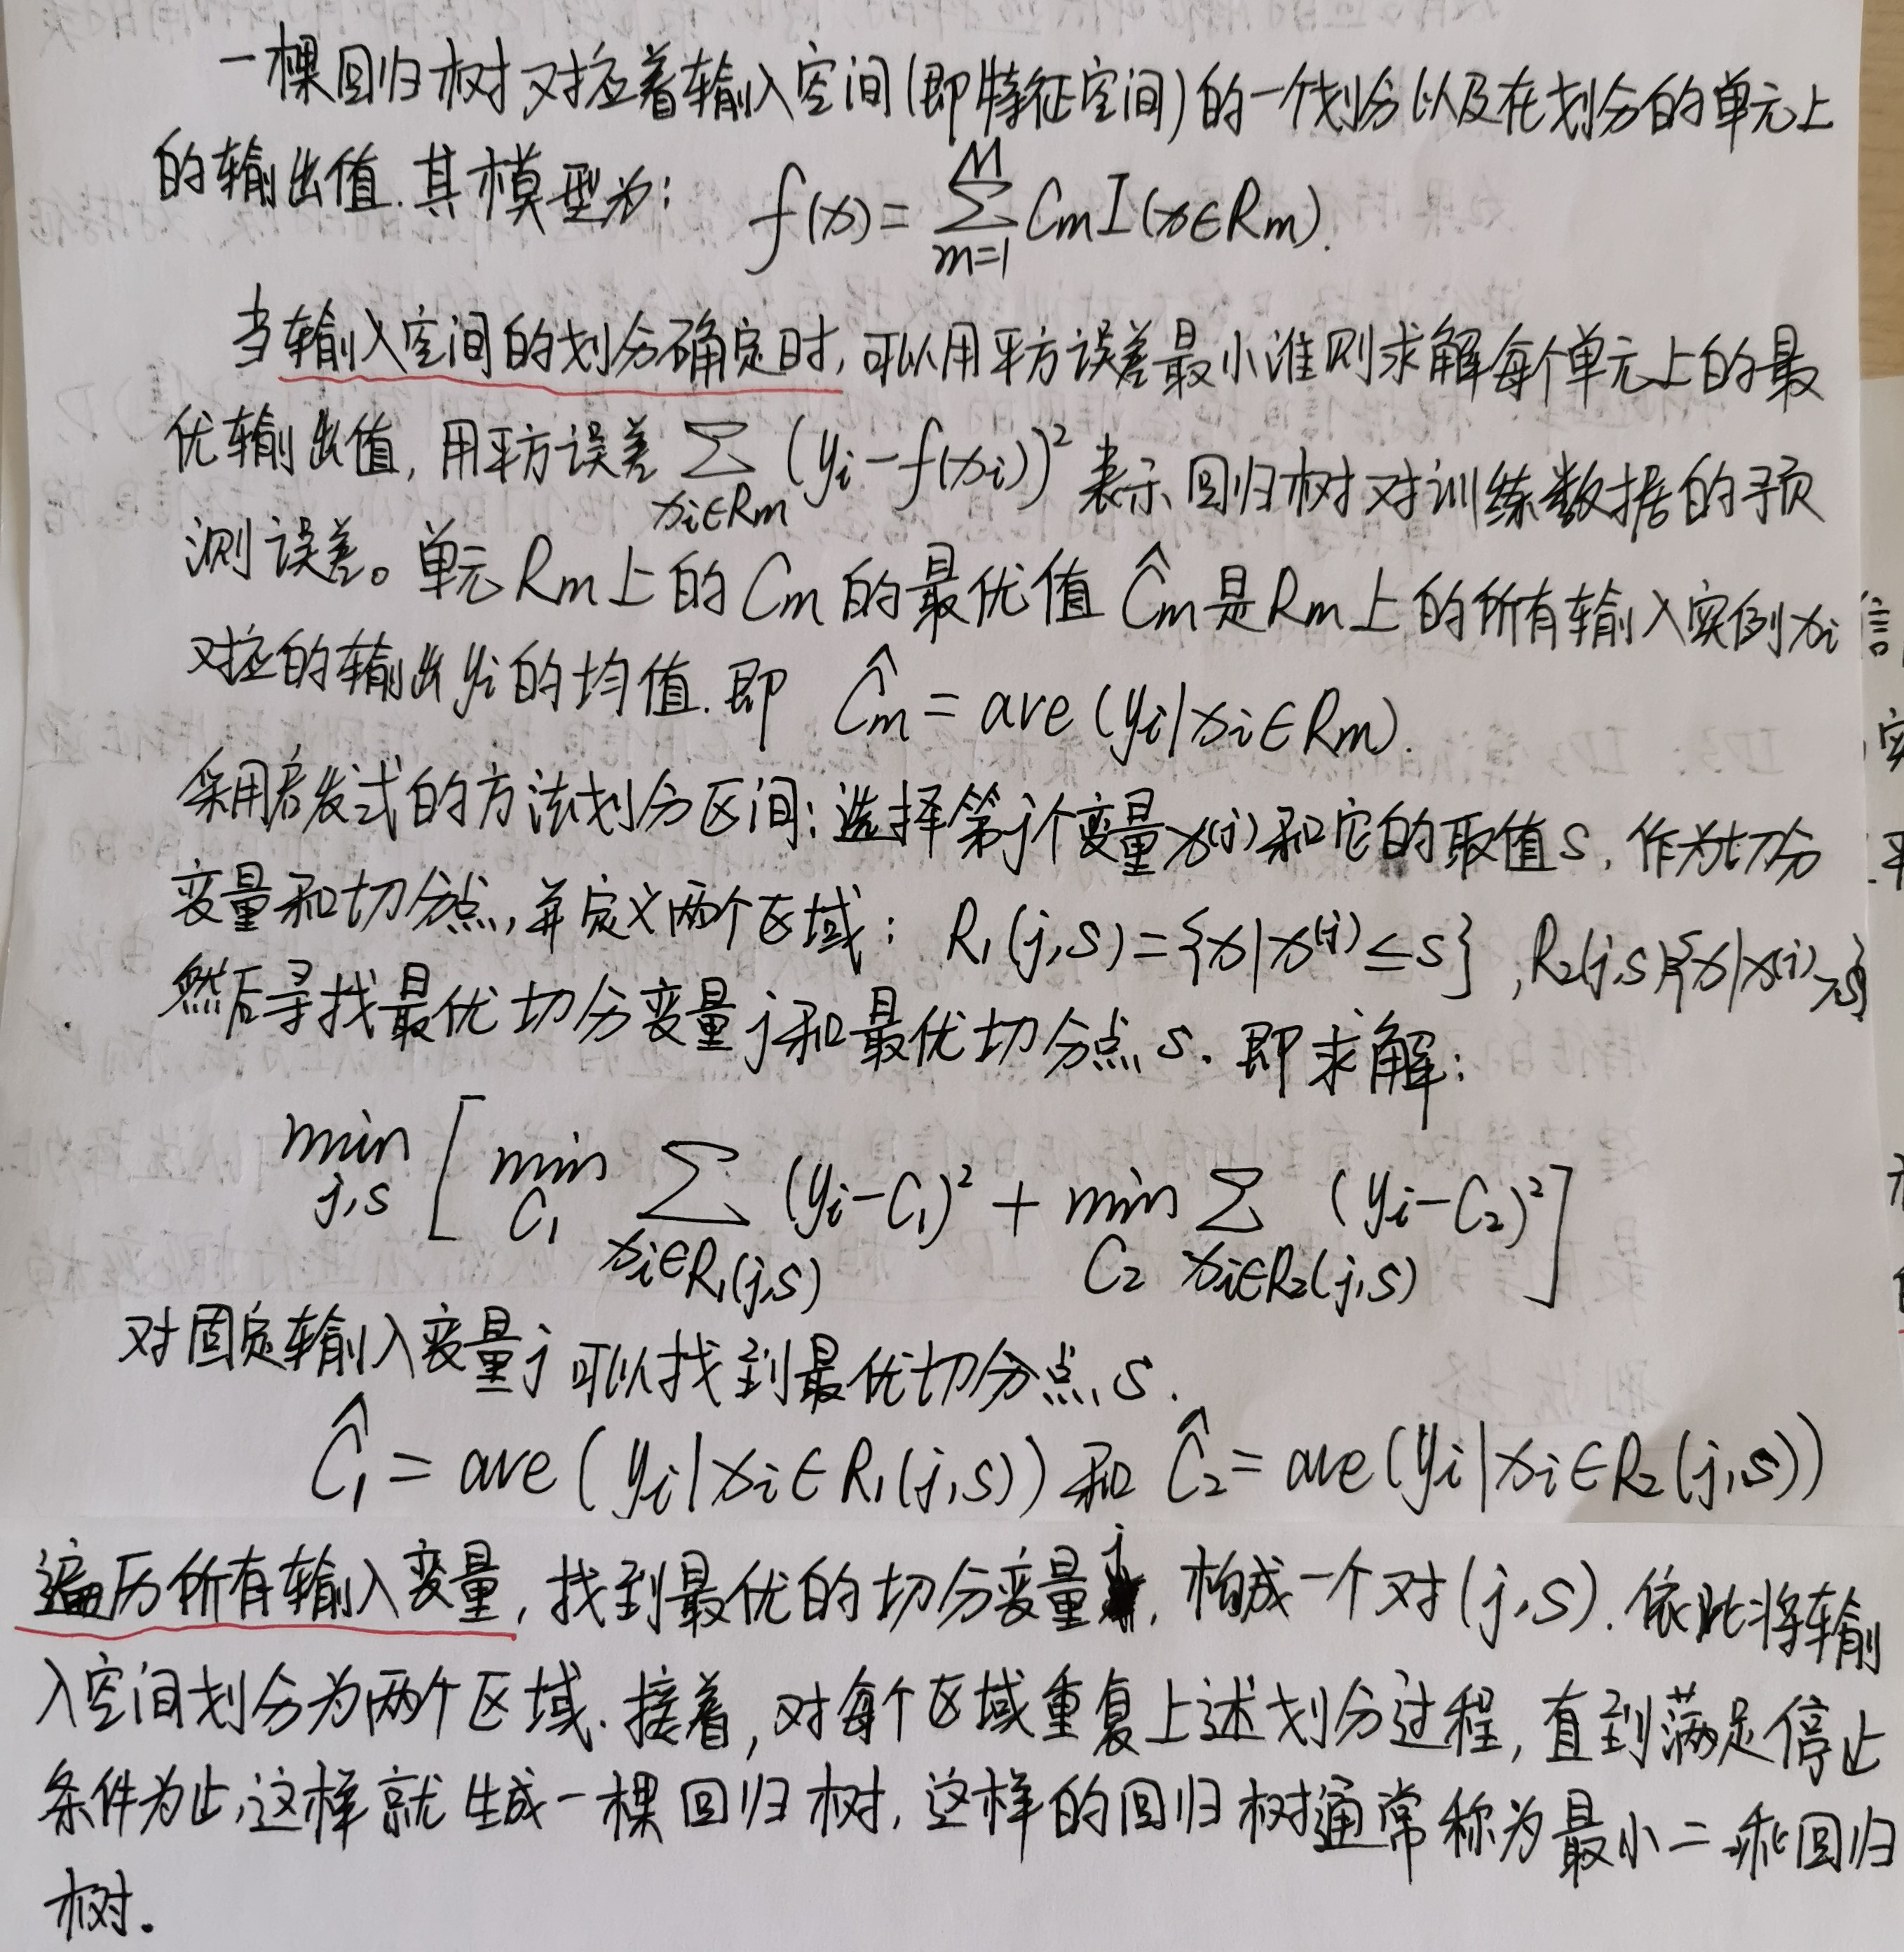 一棵回归树对应着输入空间(即特征空间)的一个划分以及在划分的单元上
的输出值.其模型为: f(x) = \sum_{m=1}^{M} C_m I(x∈R_m).
当输入空间的划分确定时,可以用平方误差最小准则求解每个单元上的最
优输出值,用平方误差 \sum_{x_i∈R_m} (y_i-f(x_i))^2 来表示回归树对训练数据的预
测误差。单元R_m上的C_m的最优值 \hat{C}_m是R_m上的所有输入实例x_i
对应的输出y_i的均值.即 \hat{C}_m = ave(y_i|x_i∈R_m).
采用启发式的方法划分区间:选择第j个变量x^{(j)}和它的取值s,作为切分
变量和切分点,并定义两个区域: R_1(j,s)={x|x^{(j)}≤s} ,R_2(j,s){x|x^{(j)}>s}
然后寻找最优切分变量j和最优切分点s.即求解:
\min_{j,s} [ \min_{C_1} \sum_{x_i∈R_1(j,s)} (y_i-C_1)^2 + \min_{C_2} \sum_{x_i∈R_2(j,s)} (y_i-C_2)^2 ]
对固定输入变量j可以找到最优切分点s.
\hat{C}_1 = ave(y_i|x_i∈R_1(j,s))和 \hat{C}_2 = ave(y_i|x_i∈R_2(j,s))
遍历所有输入变量,找到最优的切分变量j,构成一个对(j,s).依此将输
入空间划分为两个区域.接着,对每个区域重复上述划分过程,直到满足停止
条件为止,这样就生成一棵回归树,这样的回归树通常称为最小二乘回归
树.